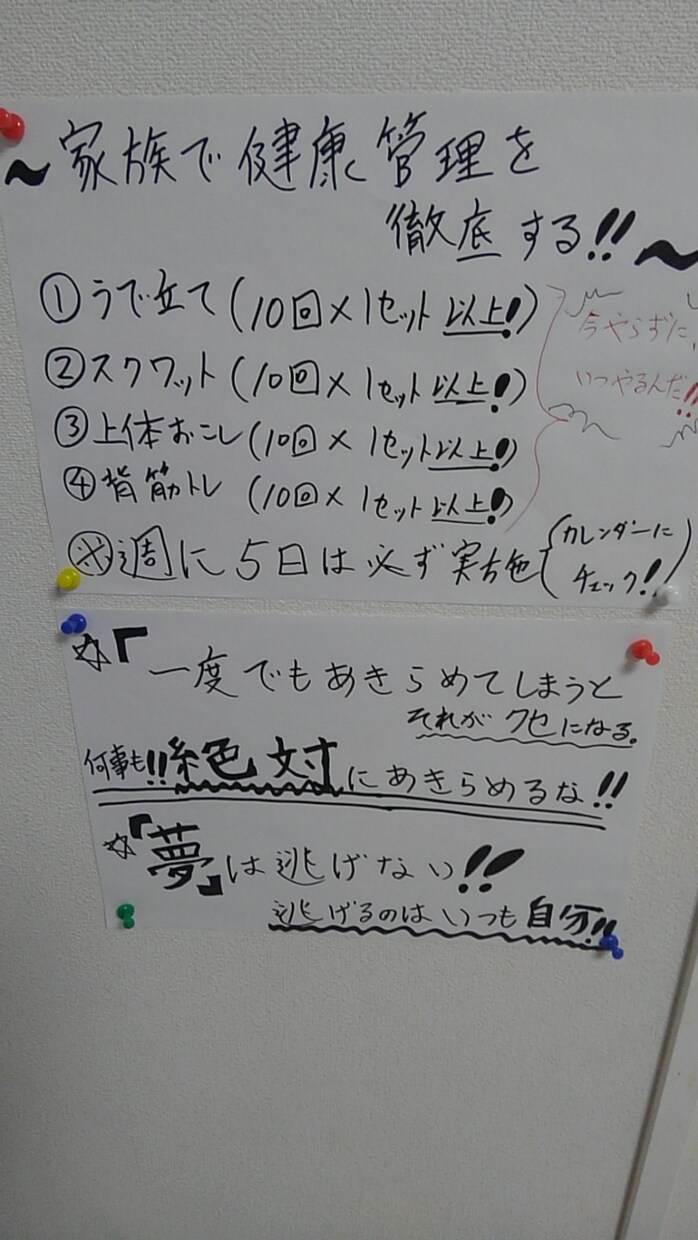 ～家族で健康管理を
徹底する!!～
①うで立て(10回×1セット以上!)
②スクワット(10回×1セット以上!)
③上体おこし(10回×1セット以上!)
④背筋トレ(10回×1セット以上!)
今やらずに、
いつやるんだ!!
※週に5日は必ず実施(カレンダーに
チェック!!)
☆「一度でもあきらめてしまうと
それがクセになる。
何事も!!絶対にあきらめるな!!
☆「夢」は逃げない!!
逃げるのはいつも自分!!